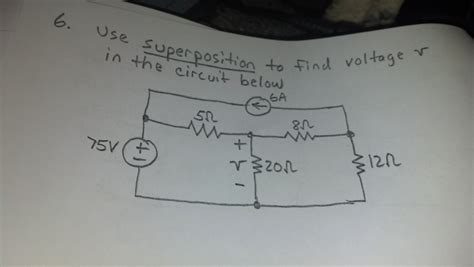 6. Use superposition to find voltage v
in the circuit below
6A
5Ω 8Ω
75V + - + v - 20Ω 12Ω